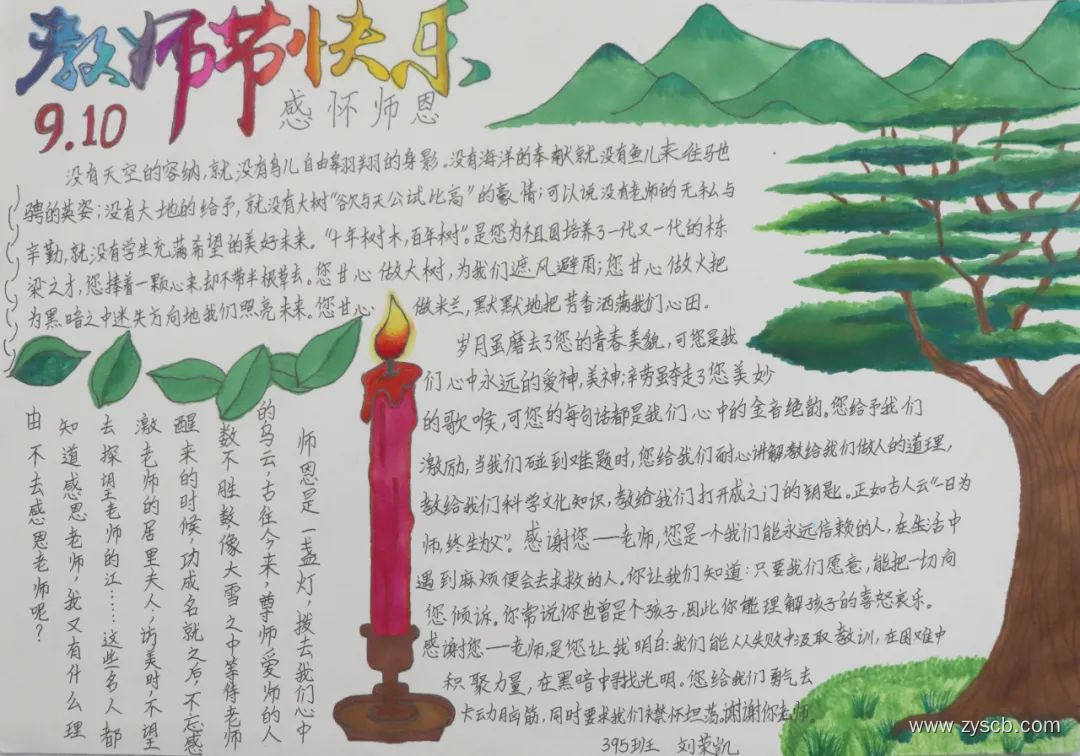 教师节快乐
9.10
感怀师恩
没有天空的容纳,就没有鸟儿自由翱翔的身影。没有海洋的奉献就没有鱼儿来往马也
骋的英姿;没有大地的给予,就没有大树“欲与天公试比高”的豪情;可以说没有老师的无私与
辛勤,就没有学生充满希望的美好未来。“十年树木,百年树”。是您为祖国培养了一代又一代的栋
梁之才,您捧着一颗心来却不带半根草去。您甘心做大树,为我们遮风避雨;您甘心做火把
为黑暗之中迷失方向地我们照亮未来。您甘心做米兰,默默地把芳香洒满我们心田。
岁月虽磨去了您的青春美貌,可您是我
们心中永远的爱神,美神;辛劳虽夺走了您美妙
的歌喉,可您的每句话都是我们心中的金音绝韵。您给予我们
激励,当我们碰到难题时,您给我们耐心讲解教给我们做人的道理,
教给我们科学文化知识,教给我们打开成之门的钥匙。正如古人云“一日为
师,终生为父”。感谢您——老师,您是一个我们能永远信赖的人,在生活中
遇到麻烦便会去求救的人。你让我们知道:只要我们愿意,能把一切向
您倾诉。你常说你也曾是个孩子,因此你能理解孩子的喜怒哀乐。
感谢您——老师,是您让我明白:我们能从失败中汲取教训,在困难中
积聚力量,在黑暗中寻找光明。您给我们勇气去
卡动脑筋,同时要求我们襟怀坦荡。谢谢你老师。
395班 刘荣凯
师恩是一盏灯,拨去我们心中
的乌云,古往今来,尊师爱师的人
数不胜数像大雪之中等待老师
醒来的时候,功成名就之后,不忘感
激老师的居里夫人,访美时,不望
去探望老师的江……这些名人都
知道感恩老师,我又有什么理
由不去感恩老师呢?
www.zyscb.com